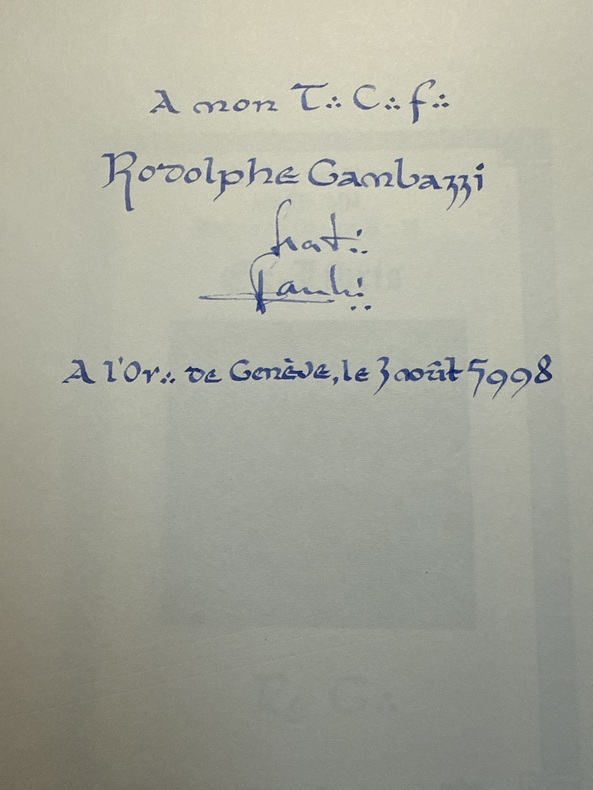 A mon T∴ C∴ f∴
Rodolphe Gambazzi
frat∴
A l'Or∴ de Genève, le 3 août 5998